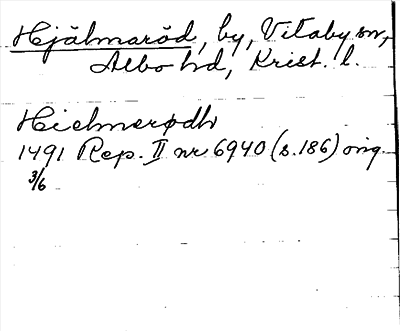 Hjälmaröd, by, Vitaby sn,
Albo hd, Krist. l.
Hielmerødh
1491 Rep. II nr 6940 (s. 186) orig.
3/6